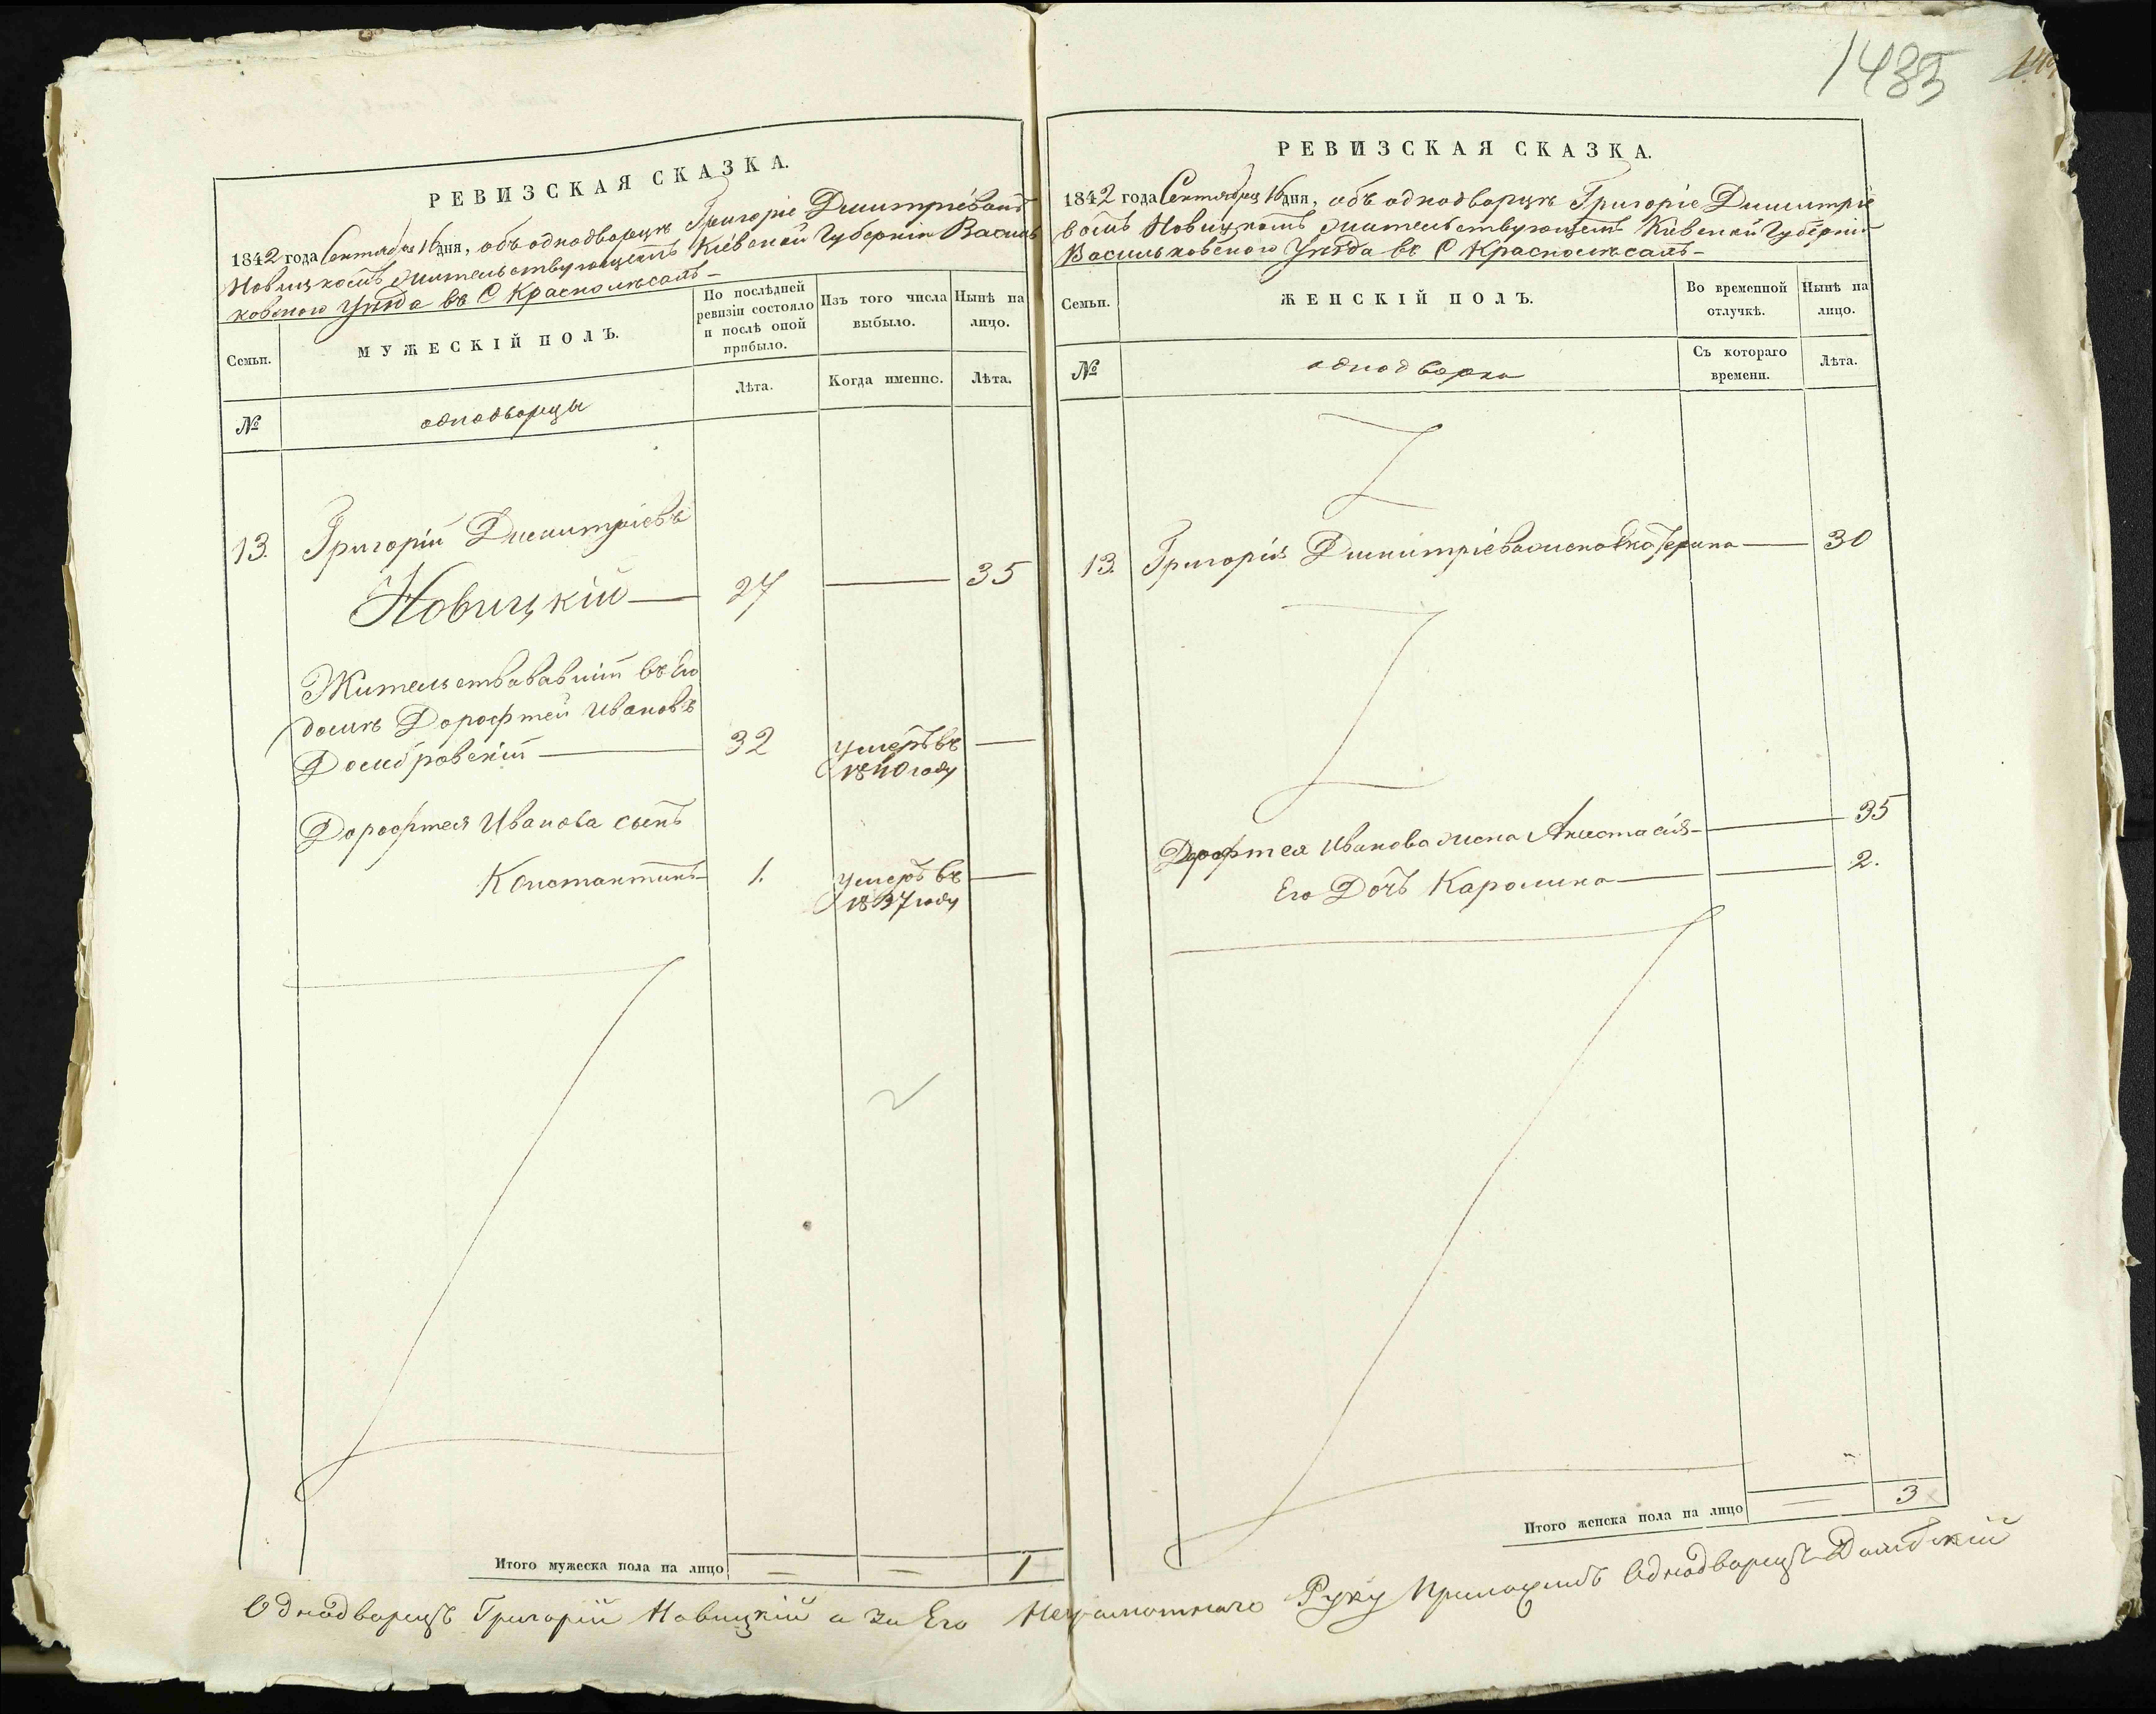 1485
РЕВИЗСКАЯ СКАЗКА.
1842 года Сентября 16 дня, объ однодворцѣ Григоріе Дмитріевомъ
Новицкомъ жительствующемъ Кіевской Губерніи Василь
ковского Уѣзда въ С Краснолѣсахъ
Семьи.
МУЖЕСКІЙ ПОЛЪ.
По послѣдней
ревизіи состояло
и послѣ оной
прибыло.
Изъ того числа
выбыло.
Нынѣ на
лицо.
№
однодворцы
Лѣта.
Когда именно.
Лѣта.
13. Григорій Дмитріевъ
Новицкій 27 35
Жительствовавшій въ Его
домѣ Дорофтей Ивановъ
Домбровскій 32 умеръ въ
1840 году
Дорофтея Иванова сынъ
Константинъ 1. умеръ въ
1837 году
Итого мужеска пола на лицо = = 1
РЕВИЗСКАЯ СКАЗКА.
1842 года Сентября 16 дня, объ однодворцѣ Григоріе Дмитріе
вомъ Новицкомъ жительствующемъ Кіевской Губерніи
Васильковского Уѣзда въ С Краснолѣсахъ
Семьи.
ЖЕНСКІЙ ПОЛЪ.
Во временной
отлучкѣ.
Нынѣ на
лицо.
№
однодворки
Съ котораго
времени.
Лѣта.
13. Григорія Дмитріева жена Екатерина 30
Дорофтея Иванова жена Анастасія 35
Его Дочь Каролина 2.
Итого женска пола на лицо = 3
Однодворецъ Григорій Новицкій а за Его Неграмотного Руку Приложилъ Однодворецъ